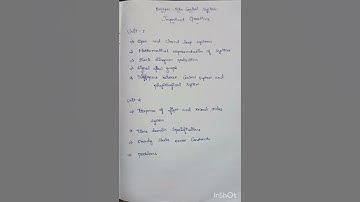 Control System
Important Questions
Unit - 1
Open and closed loop systems
Mathematical representation of systems
Block diagram reduction
Signal flow graph
Difference between control system and physiological system
Unit - 2
Response of first and second order system
Time domain Specifications
Steady state error Constants
Problems
InShOt